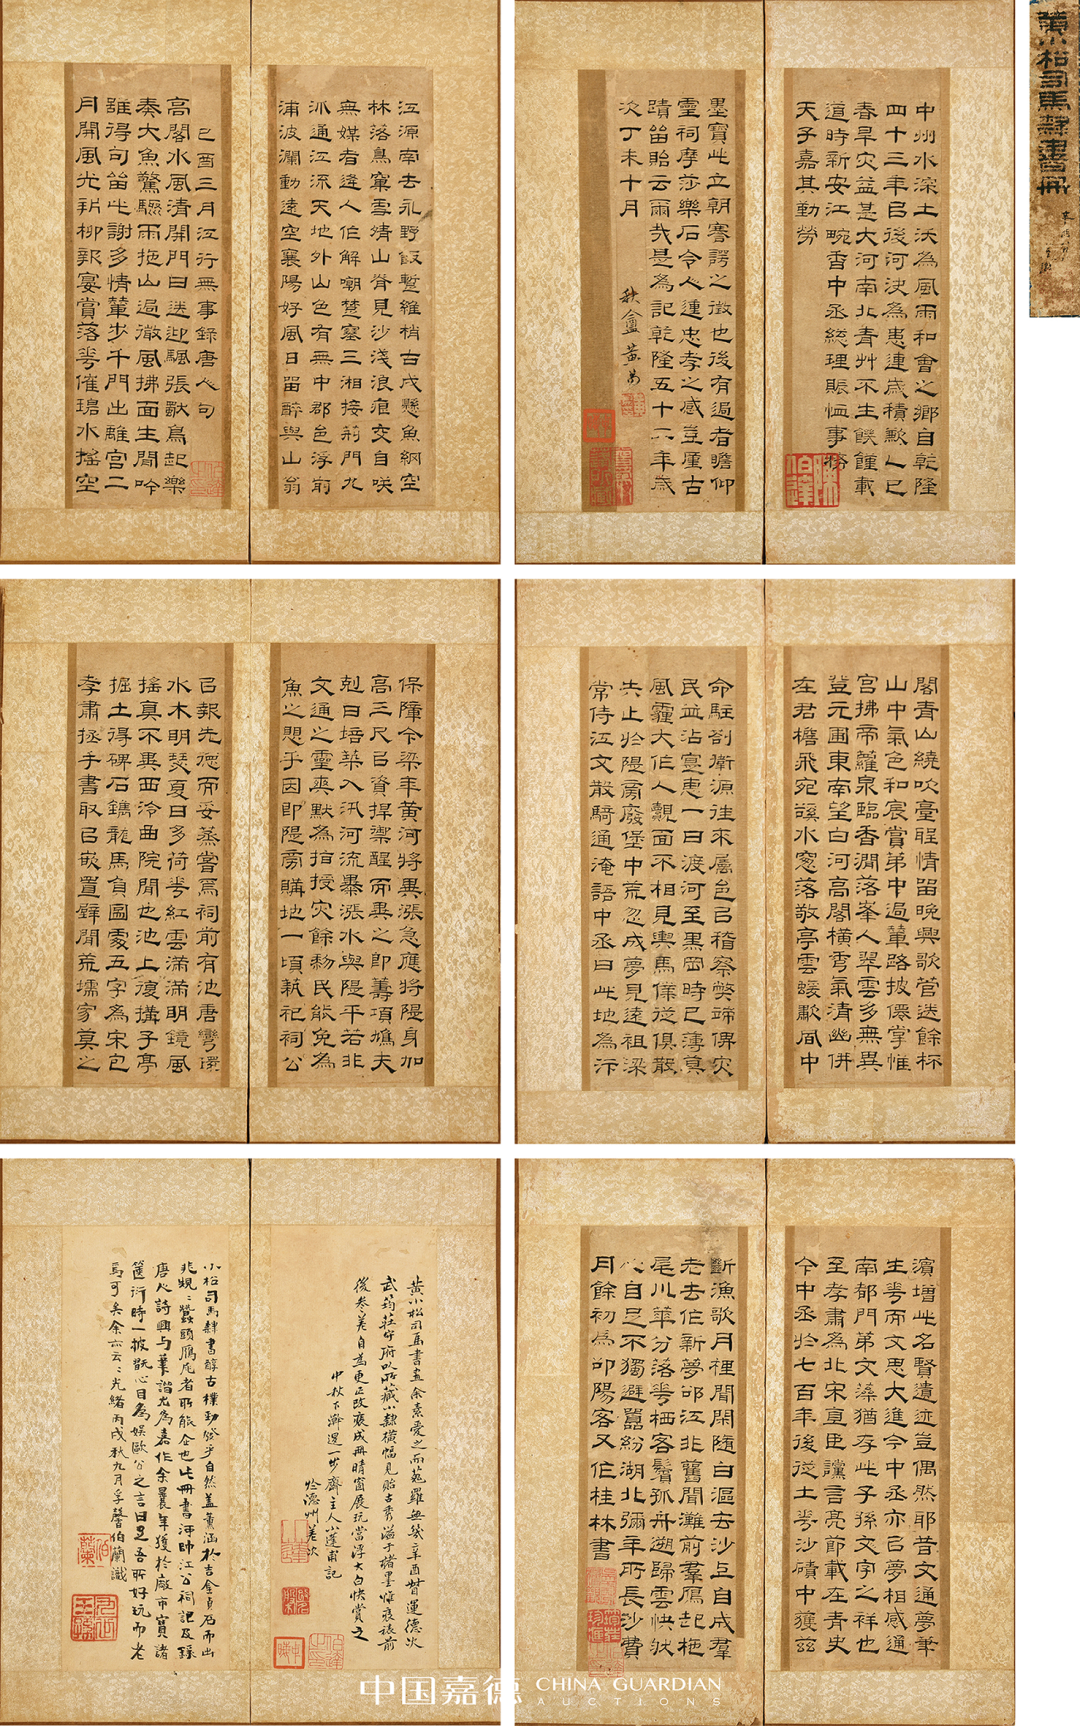 黃小松司馬隸書冊
中州水深土沃為風雨和會之鄉自乾隆
四十三年㠯後河決為患連歲積歉人已
春旱灾益甚大河南北青艸不生餓饉載
道時新安江畹香中丞総理賑恤事務
天子嘉其勤勞
墨寶此立朝謇諤之徵也後有過者瞻仰
靈祠摩莎樂石令人連忠孝之感豈廑古
蹟留貽云爾哉是為記乾隆五十二年歲
次丁未十月
秋盦黃易
江源南去永野飯暫維梢古戍懸魚網空
林落鳥窠雪晴山脊見沙淺浪痕交自咲
無媒者逢人作解嘲楚塞三湘接荊門九
派通江流天地外山色有無中郡邑浮前
浦波瀾動遠空襄陽好風日留醉與山翁
己酉三月江行無事錄唐人句
高閣水風清開門日送迎颿張獸鳥起樂
奏大魚驚驟雨拖山過微風拂面生閒吟
誰得句留此謝多情輦步千門出離宮二
月開風光新柳報宴賞落花催碧水搖空
閣青山繞吹臺聖情留晚興歌管送餘杯
山中氣色和宸賞第中過輦路披僊掌帷
宮拂帝蘿泉臨香澗落峯入翠雲多無異
登元圃東南望白河高閣橫秀氣清幽併
在君檐飛宛谿水窻落敬亭雲蝯歗
命駐劄衛源往來屬邑㠯稽察弊竇俾灾
民益沾實惠一日渡河至黑岡時已薄莫
風霾大作人覿面不相見輿馬傔從俱散
失止於隄廟廢堡中荒忽成夢見遠祖梁
常侍江文散騎通淹語中丞曰此地為汴
保障今年黃河將異漲急應將隄身加
高三尺㠯資捍禦醒而異之即籌項
剋日培築入汛河流暴漲水與隄平若非
文通之靈爽默為指授灾餘黎民能免為
魚之患乎因即隄旁購地一項
㠯報先德而妥蒸嘗焉祠前有池唐灣環
水木明瑟夏日多荷花紅雲滿滿明鏡風
搖真不異西泠曲院閒也池上復搆子亭
掘土得碑石鐫龍馬負圖處五字為宋包
孝肅拯手書取㠯嵌置壁閒荒壖家莫之
濱增此名賢遺迹豈偶然耶昔文通夢筆
生花而文思大進今中丞亦㠯夢相感通
南都門第文藻猶存此子孫文字之祥也
至孝肅為北宋直臣讜言亮節載在青史
今中丞於七百年後從土花沙磧中獲茲
斷漁歌月裡聞閑隨白漚去沙上自成羣
老去作新夢邛江非舊聞灘前羣鴈起柂
尾川華分落花栖客鬢孤舟遡歸雲快狄
心自足不獨避囂紛湖北彌年所長沙費
月餘初為卬陽客又作桂林書
黃小松司馬書畫余素愛之而苑羅無幾辛酉督運德次
武筠莊守府以所藏小隸橫幅見貽古秀溢于諸墨惟裝裱前
後參差自為更正改裝成冊晴窗展玩當浮大白快賞之
中秋下澣還一步齋主人小蓮甫記
於德州差次
小松司馬隸書醇古樸勁簽乎自然蓋薰涵於吉金貞石而出
非規規蠶頭鴈尾者所能企也此冊書河帥江公祠記及錄
唐人詩興與筆諧尤為嘉作余曩年獲於廠市寶諸
篋衍時一披翫心目為娛歐公之言曰足吾所好玩而老
焉可矣余亦云云光緒丙戌秋九月孚馨伯蘭識
中国嘉德 CHINA GUARDIAN
AUCTIONS